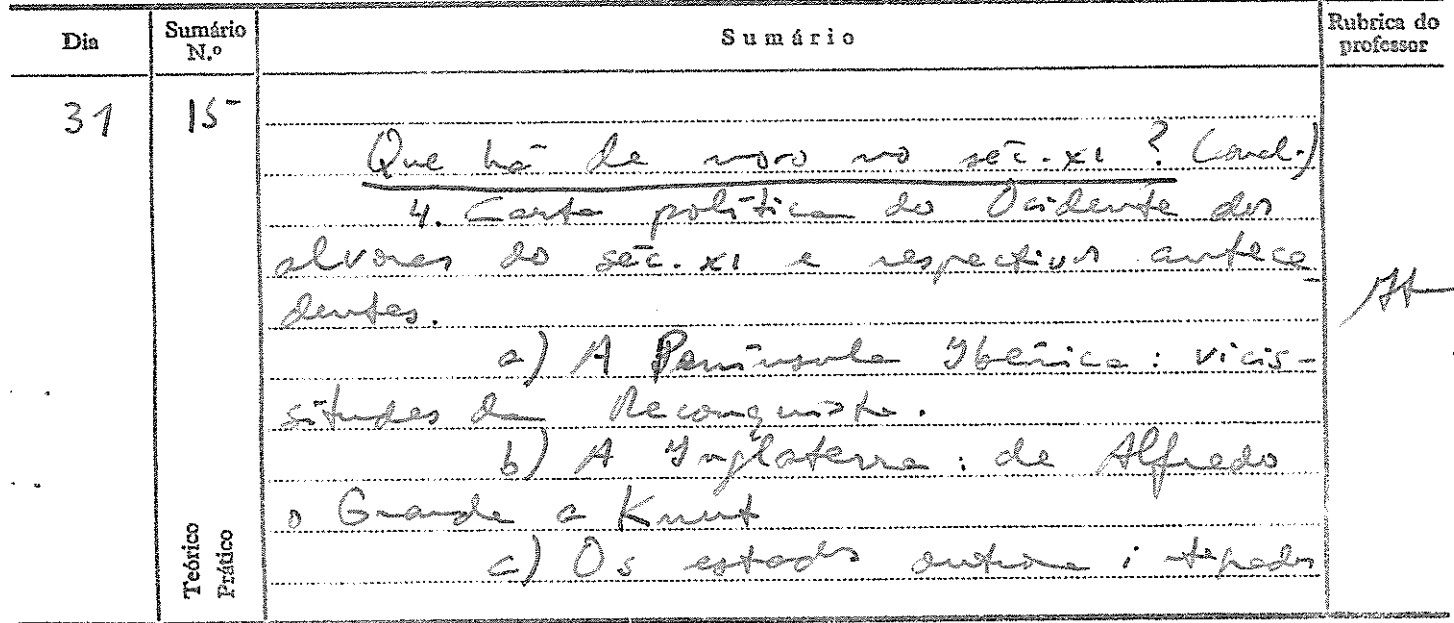 Dia Sumário N.º Sumário Rubrica do professor
31 15
Que há de novo no séc. XI? (Concl.)
4. Carta política do Ocidente dos
alvores do séc. XI e respectivos antece-
dentes.
a) A Península Ibérica: vicis-
situdes da Reconquista.
b) A Inglaterra: de Alfredo
o Grande a Knut
c) Os estados
Teórico
Prático